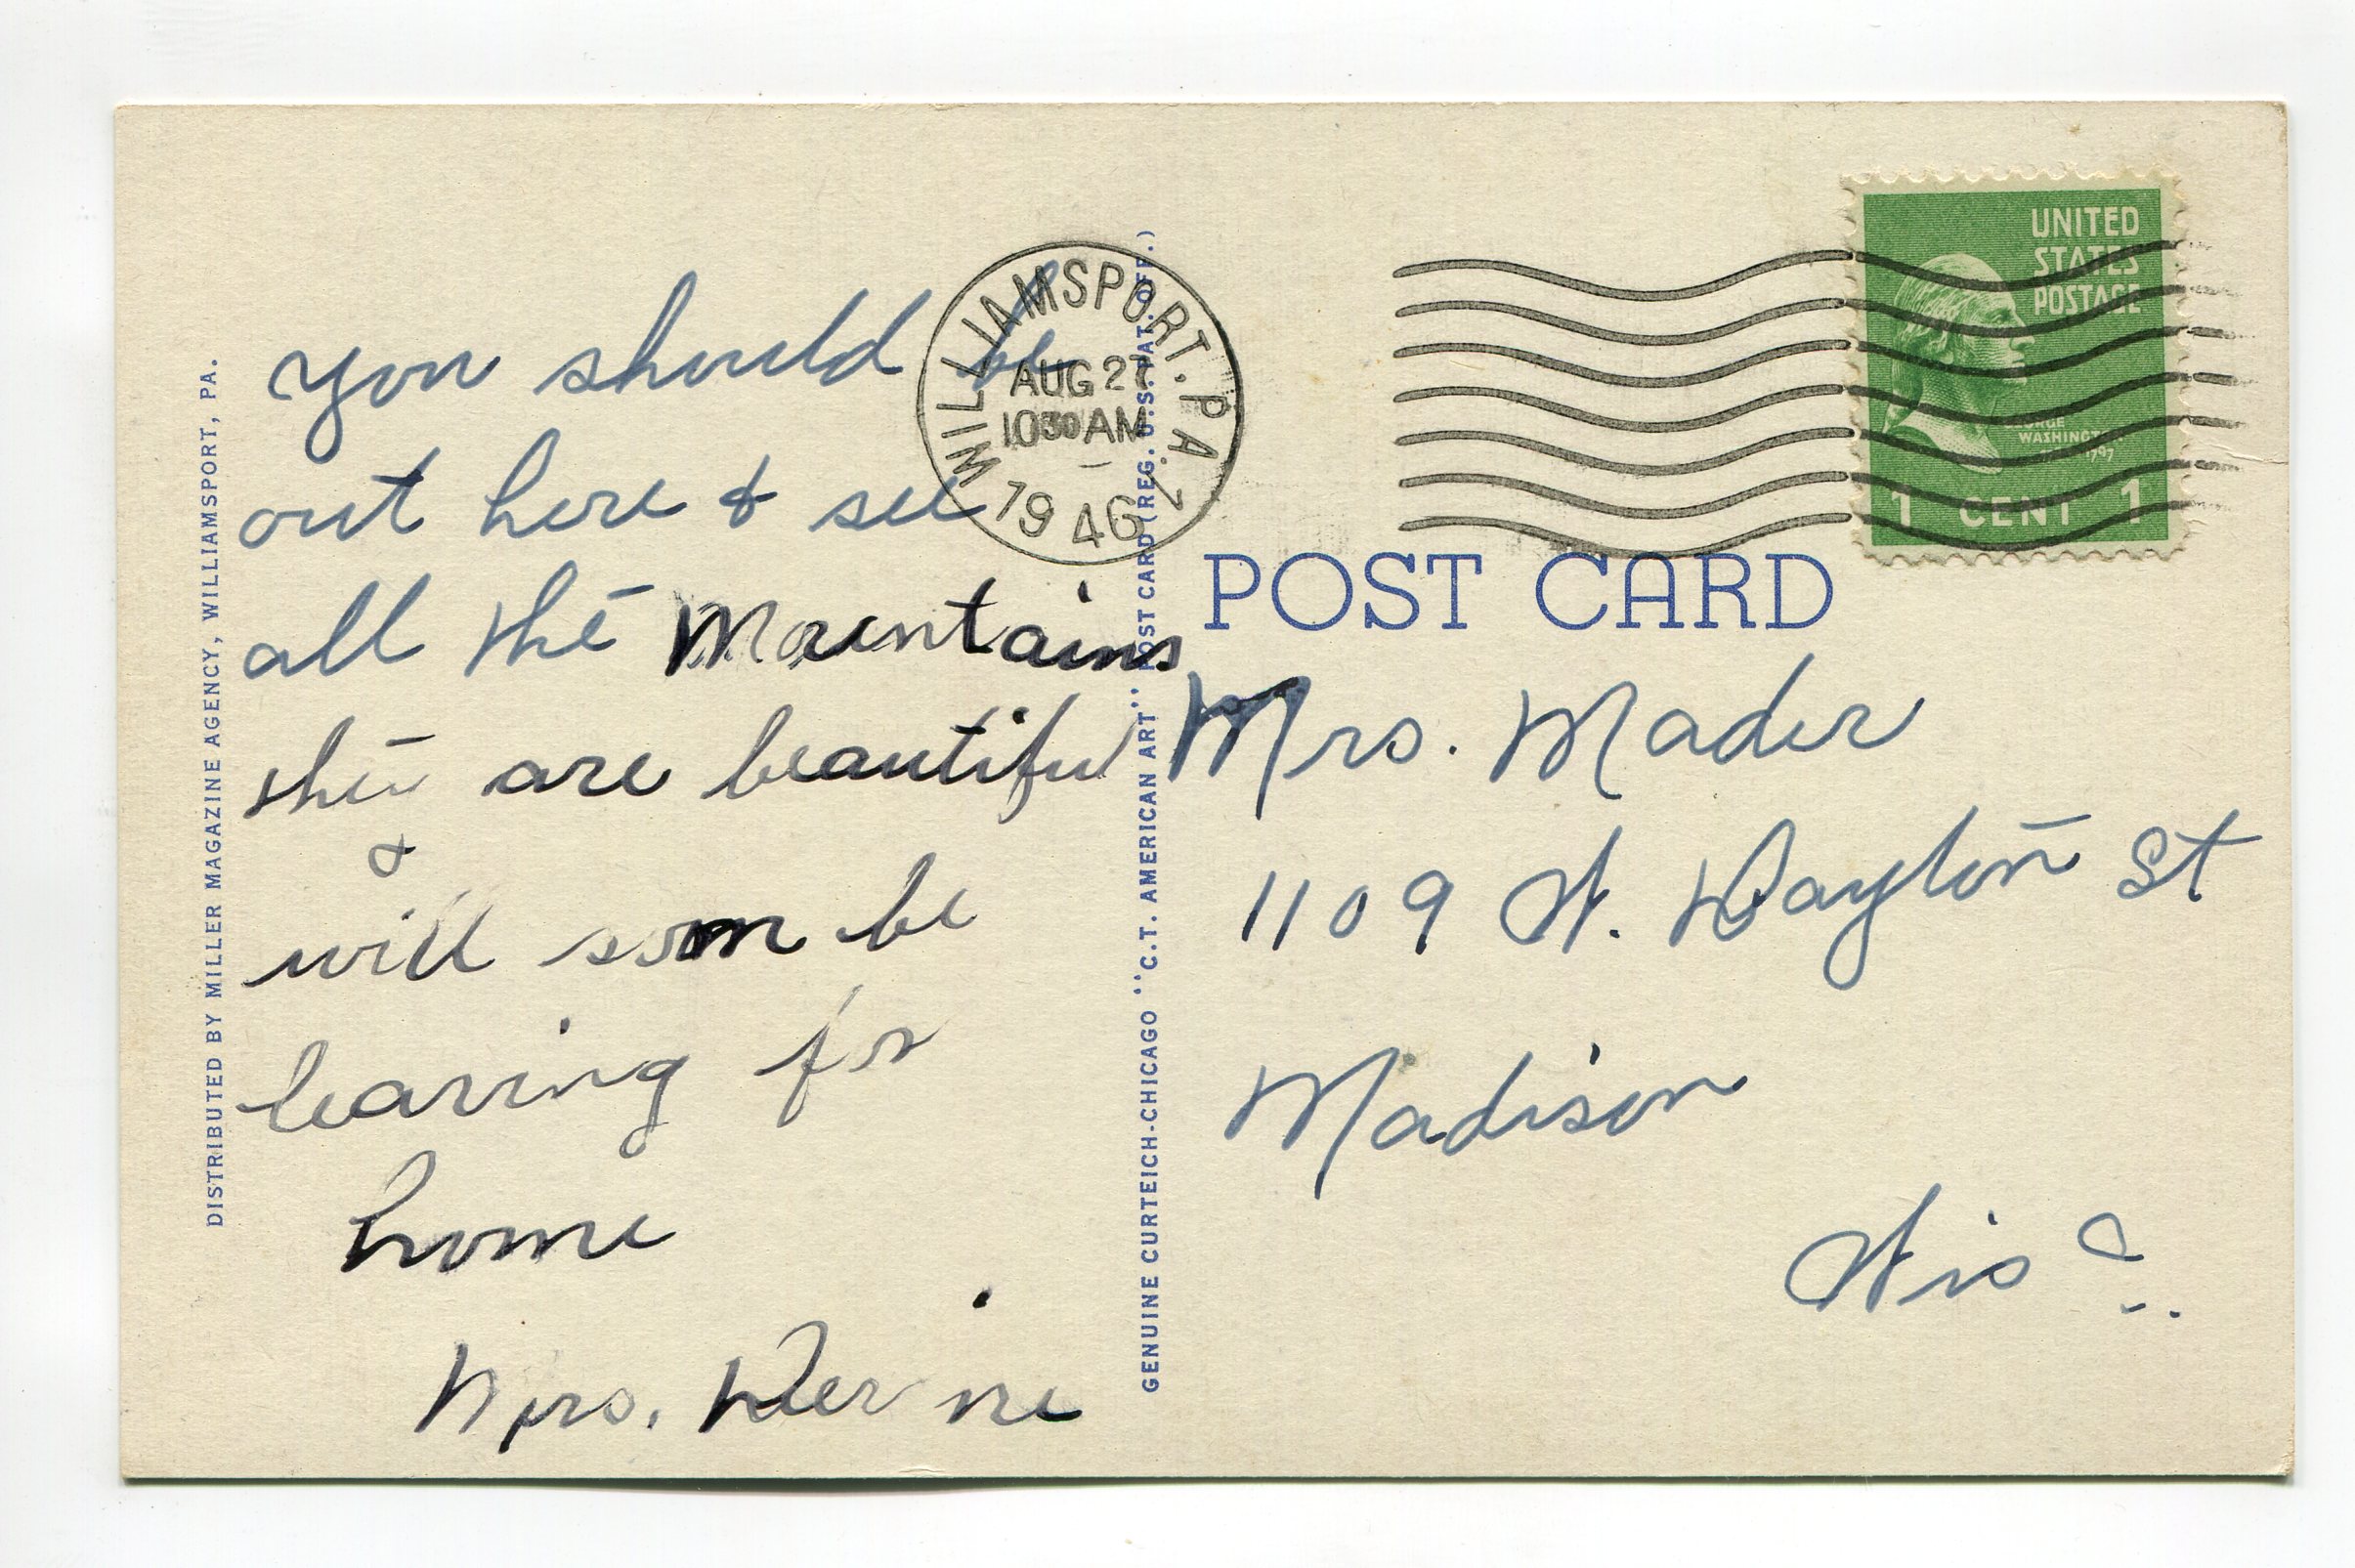 DISTRIBUTED BY MILLER MAGAZINE AGENCY, WILLIAMSPORT, PA.
You should be
out here & see
all the Mountains
they are beautiful
&
will soon be
leaving for
home
Mrs. Devine
WILLIAMSPORT. PA. 1
AUG 27
10 30 AM
1946
GENUINE CURTEICH-CHICAGO "C.T. AMERICAN ART" POST CARD (REG. U.S. PAT. OFF.)
UNITED
STATES
POSTAGE
GEORGE
WASHINGTON
1797
1 CENT 1
POST CARD
Mrs. Mader
1109 W. Dayton St
Madison
Wis